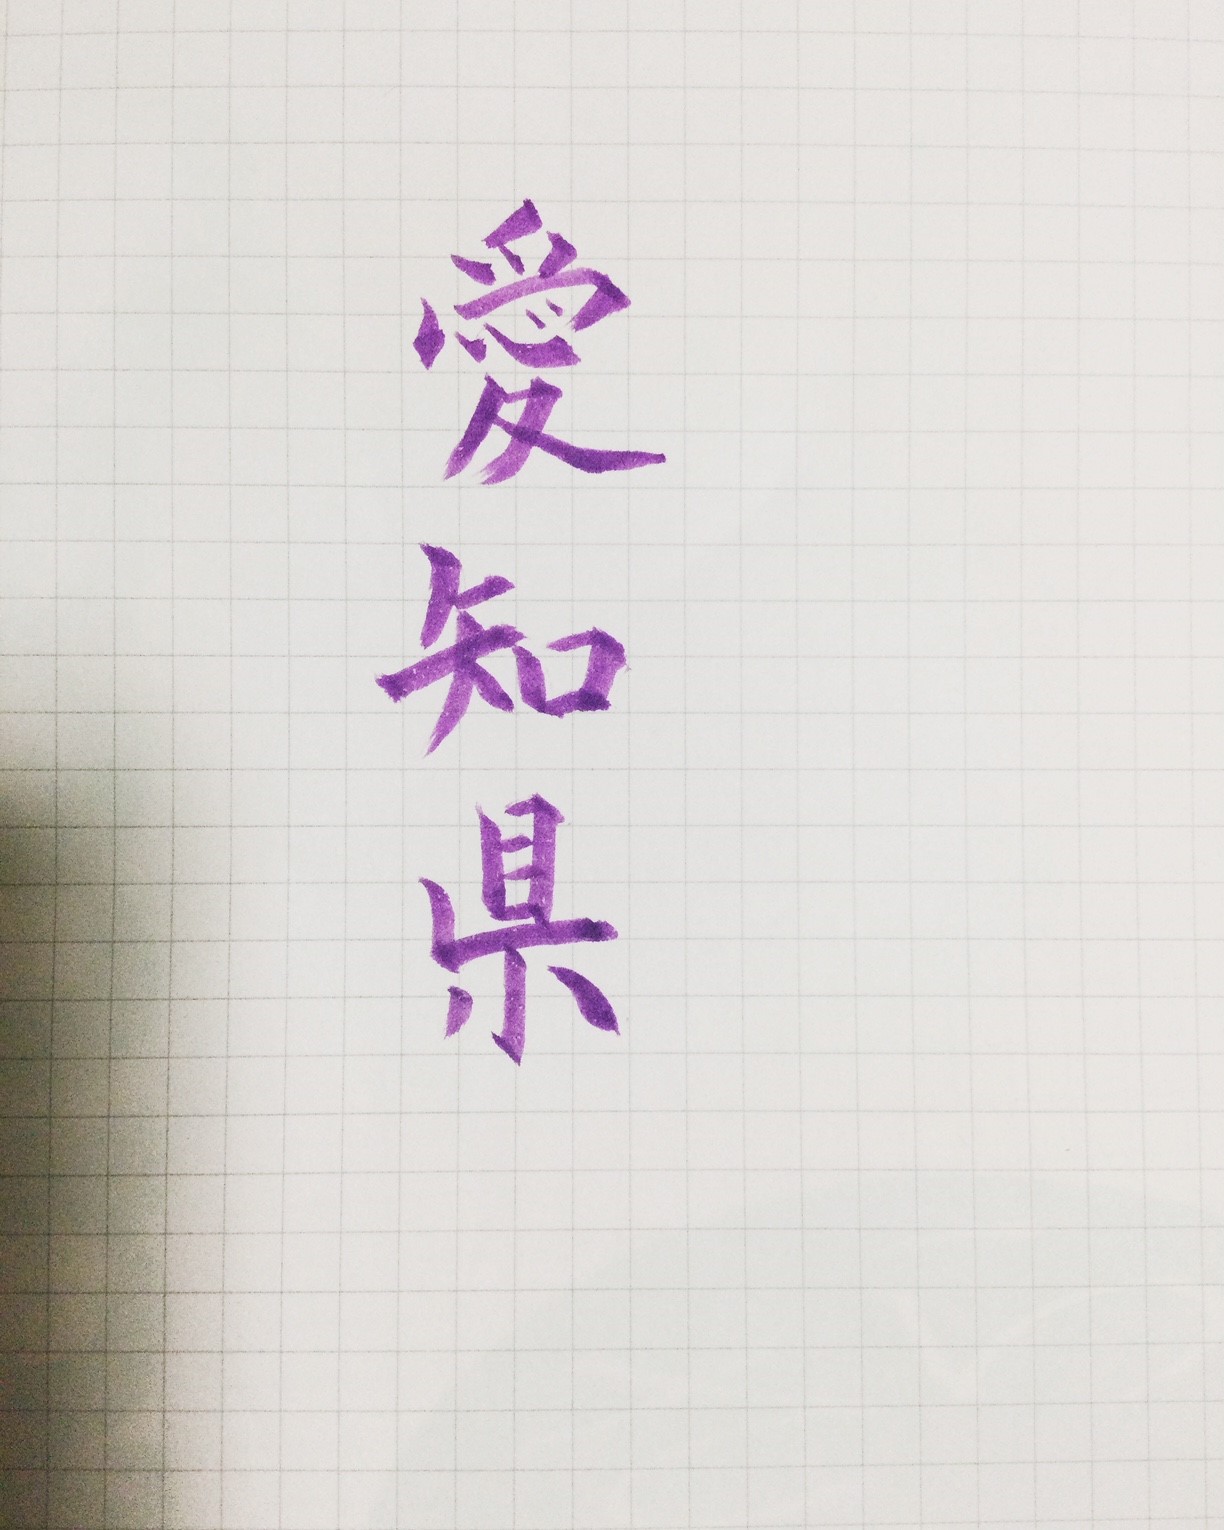 愛知県